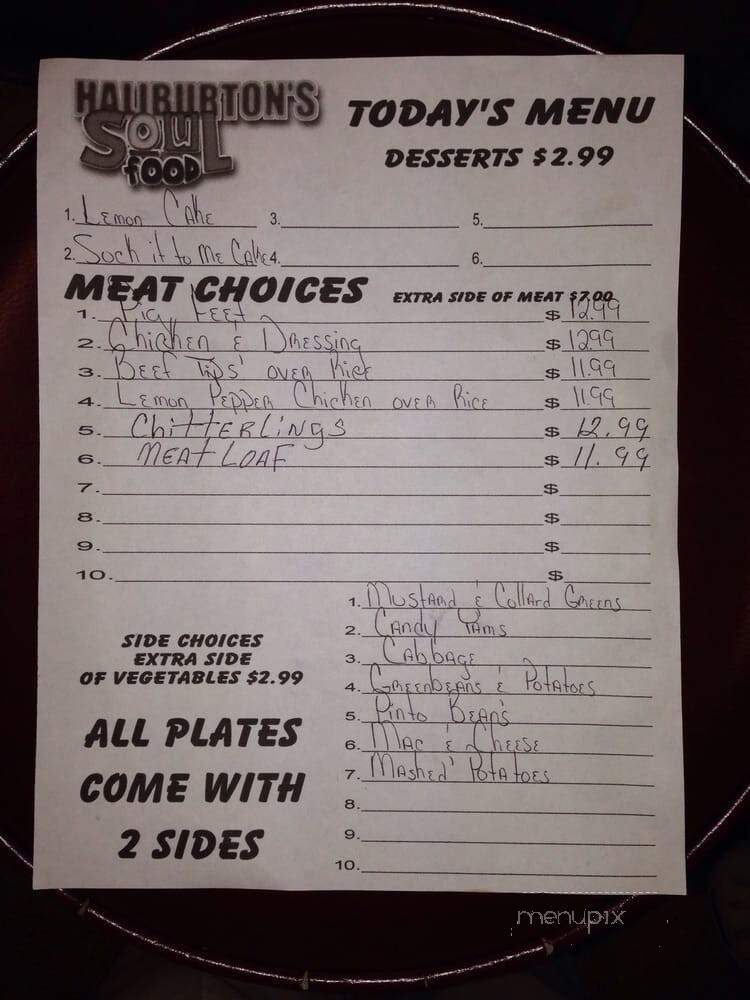 HALIBURTON'S
SOUL
FOOD
TODAY'S MENU
DESSERTS $2.99
1. Lemon Cake 3. 5.
2. Sock it to Me Cake 4. 6.
MEAT CHOICES EXTRA SIDE OF MEAT $7.00
1. Pig Feet $ 12.99
2. Chicken & Dressing $ 12.99
3. Beef Tips' over Rice $ 11.99
4. Lemon Pepper Chicken over Rice $ 11.99
5. Chitterlings $ 12.99
6. Meat Loaf $ 11.99
7. $
8. $
9. $
10. $
SIDE CHOICES
EXTRA SIDE
OF VEGETABLES $2.99
ALL PLATES
COME WITH
2 SIDES
1. Mustard & Collard Greens
2. Candy Yams
3. Cabbage
4. Greenbeans & Potatoes
5. Pinto Bean's
6. Mac & Cheese
7. Mashed' Potatoes
8.
9.
10.
menupix